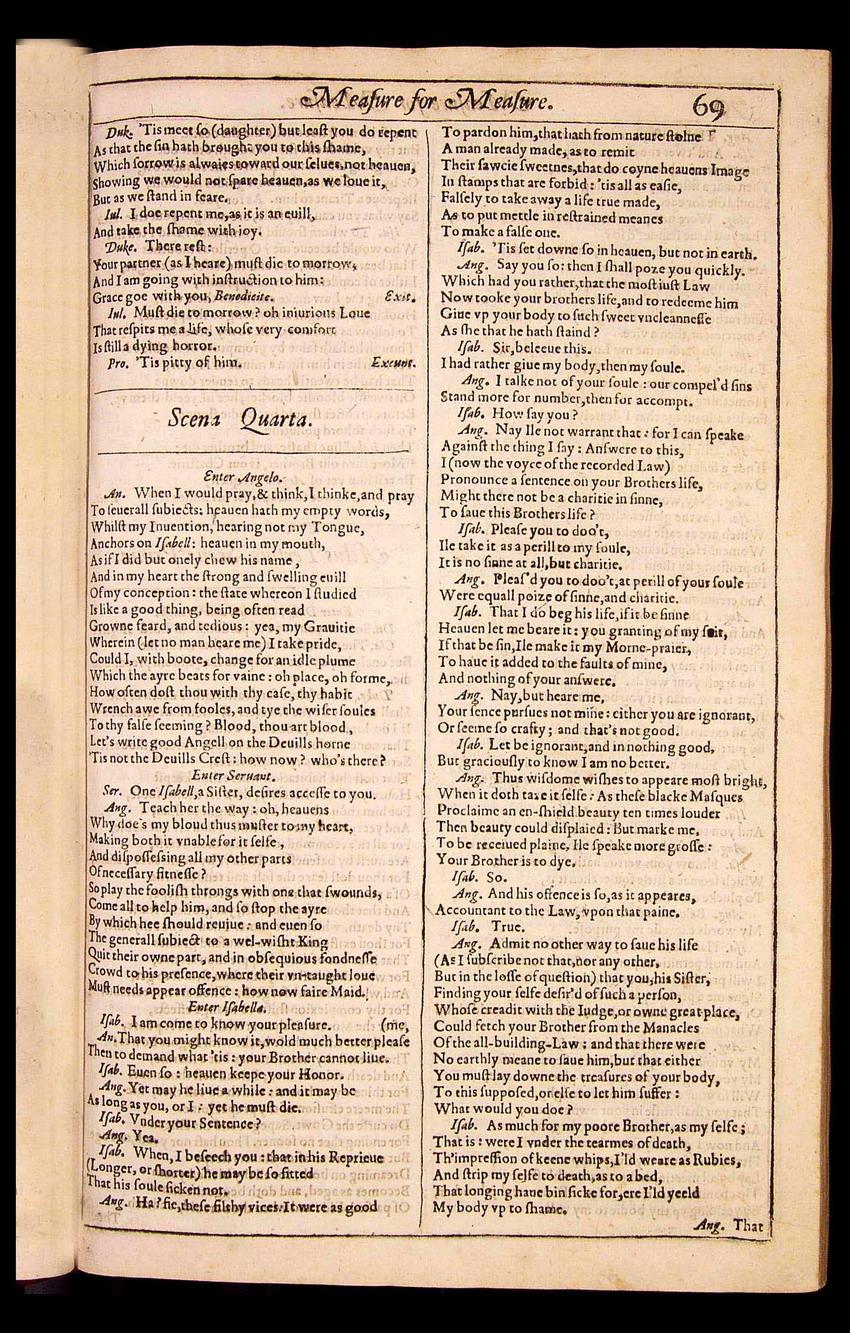 Meaſure for Meaſure.
69
Duk. 'Tis meet ſo (daughter) but leaſt you do repent
As that the ſin hath brought you to this ſhame,
Which ſorrow is alwaies toward our ſelues, not heauen,
Showing we would not ſpare heauen, as we loue it,
But as we ſtand in feare.
Iul. I doe repent me, as it is an euill,
And take the ſhame with ioy.
Duke. There reſt:
Your partner (as I heare) muſt die to morrow,
And I am going with inſtruction to him:
Grace goe with you, Benedicite. Exit.
Iul. Muſt die to morrow? oh iniurious Loue
That reſpits me a life, whoſe very comfort
Is ſtill a dying horror.
Pro. 'Tis pitty of him. Exeunt.
Scena Quarta.
Enter Angelo.
An. When I would pray, & think, I thinke, and pray
To ſeuerall ſubiects: heauen hath my empty words,
Whilſt my Inuention, hearing not my Tongue,
Anchors on Iſabell: heauen in my mouth,
As if I did but onely chew his name,
And in my heart the ſtrong and ſwelling euill
Of my conception: the ſtate whereon I ſtudied
Is like a good thing, being often read
Growne feard, and tedious: yea, my Grauitie
Wherein (let no man heare me) I take pride,
Could I, with boote, change for an idle plume
Which the ayre beats for vaine: oh place, oh forme,
How often doſt thou with thy caſe, thy habit
Wrench awe from fooles, and tye the wiſer ſoules
To thy falſe ſeeming? Blood, thou art blood,
Let's write good Angell on the Deuills horne
'Tis not the Deuills Creſt: how now? who's there?
Enter Seruant.
Ser. One Iſabell, a Siſter, deſires acceſſe to you.
Ang. Teach her the way: oh, heauens
Why doe's my bloud thus muſter to my heart,
Making both it vnable for it ſelfe,
And diſpoſſeſſing all my other parts
Of neceſſary fitneſſe?
So play the fooliſh throngs with one that ſwounds,
Come all to help him, and ſo ſtop the ayre
By which hee ſhould reuiue: and euen ſo
The generall ſubiect to a wel-wiſht King
Quit their owne part, and in obſequious fondneſſe
Crowd to his preſence, where their vn-taught loue
Muſt needs appear offence: how now faire Maid.
Enter Iſabella.
Iſab. I am come to know your pleaſure. (me,
An. That you might know it, wold much better pleaſe
Then to demand what 'tis: your Brother cannot liue.
Iſab. Euen ſo: heauen keepe your Honor.
Ang. Yet may he liue a while: and it may be
As long as you, or I: yet he muſt die.
Iſab. Vnder your Sentence?
Ang. Yea.
Iſab. When, I beſeech you: that in his Reprieue
(Longer, or ſhorter) he may be ſo fitted
That his ſoule ſicken not.
Ang. Ha? fie, theſe filthy vices: It were as good
To pardon him, that hath from nature ſtolne
A man already made, as to remit
Their ſawcie ſweetnes, that do coyne heauens Image
In ſtamps that are forbid: 'tis all as eaſie,
Falſely to take away a life true made,
As to put mettle in reſtrained meanes
To make a falſe one.
Iſab. 'Tis ſet downe ſo in heauen, but not in earth.
Ang. Say you ſo: then I ſhall poze you quickly.
Which had you rather, that the moſt iuſt Law
Now tooke your brothers life, and to redeeme him
Giue vp your body to ſuch ſweet vncleanneſſe
As ſhe that he hath ſtaind?
Iſab. Sir, beleeue this.
I had rather giue my body, then my ſoule.
Ang. I talke not of your ſoule: our compel'd ſins
Stand more for number, then for accompt.
Iſab. How ſay you?
Ang. Nay Ile not warrant that: for I can ſpeake
Againſt the thing I ſay: Anſwere to this,
I (now the voyce of the recorded Law)
Pronounce a ſentence on your Brothers life,
Might there not be a charitie in ſinne,
To ſaue this Brothers life?
Iſab. Pleaſe you to doo't,
Ile take it as a perill to my ſoule,
It is no ſinne at all, but charitie.
Ang. Pleaſ'd you to doo't, at perill of your ſoule
Were equall poize of ſinne, and charitie.
Iſab. That I do beg his life, if it be ſinne
Heauen let me beare it: you granting of my ſuit,
If that be ſin, Ile make it my Morne-praier,
To haue it added to the faults of mine,
And nothing of your anſwere.
Ang. Nay, but heare me,
Your ſence purſues not mine: either you are ignorant,
Or ſeeme ſo crafty; and that's not good.
Iſab. Let be ignorant, and in nothing good,
But graciouſly to know I am no better.
Ang. Thus wiſdome wiſhes to appeare moſt bright,
When it doth taxe it ſelfe: As theſe blacke Maſques
Proclaime an en-ſhield beauty ten times louder
Then beauty could diſplaied: But marke me,
To be receiued plaine, Ile ſpeake more groſſe:
Your Brother is to dye.
Iſab. So.
Ang. And his offence is ſo, as it appeares,
Accountant to the Law, vpon that paine.
Iſab. True.
Ang. Admit no other way to ſaue his life
(As I ſubſcribe not that, nor any other,
But in the loſſe of queſtion) that you, his Siſter,
Finding your ſelfe deſir'd of ſuch a perſon,
Whoſe creadit with the Iudge, or owne great place,
Could fetch your Brother from the Manacles
Of the all-building-Law: and that there were
No earthly meane to ſaue him, but that either
You muſt lay downe the treaſures of your body,
To this ſuppoſed, or elſe to let him ſuffer:
What would you doe?
Iſab. As much for my poore Brother, as my ſelfe;
That is: were I vnder the tearmes of death,
Th'impreſſion of keene whips, I'ld weare as Rubies,
And ſtrip my ſelfe to death, as to a bed,
That longing haue bin ſicke for, ere I'ld yeeld
My body vp to ſhame.
Ang. That